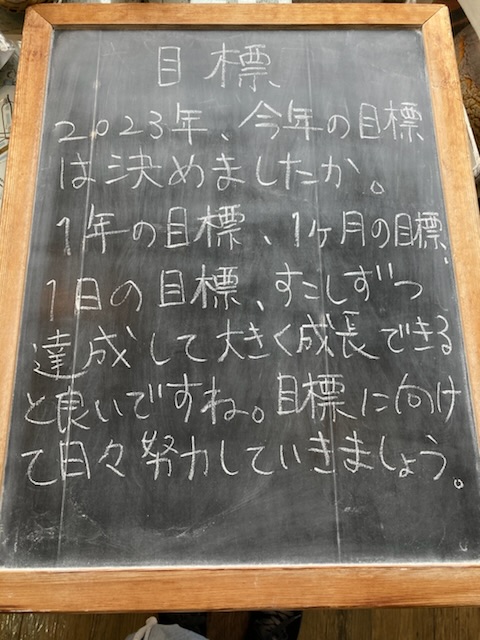 目標
2023年、今年の目標
は決めましたか。
1年の目標、1ヶ月の目標、
1日の目標、すこしずつ
達成して大きく成長できる
と良いですね。目標に向け
て日々努力していきましょう。